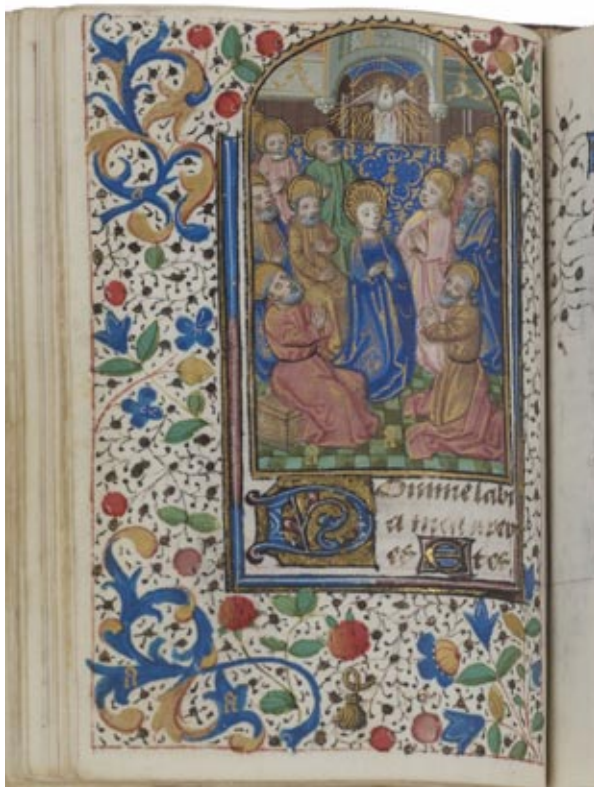 Domine labi
a mea peri
es Et os